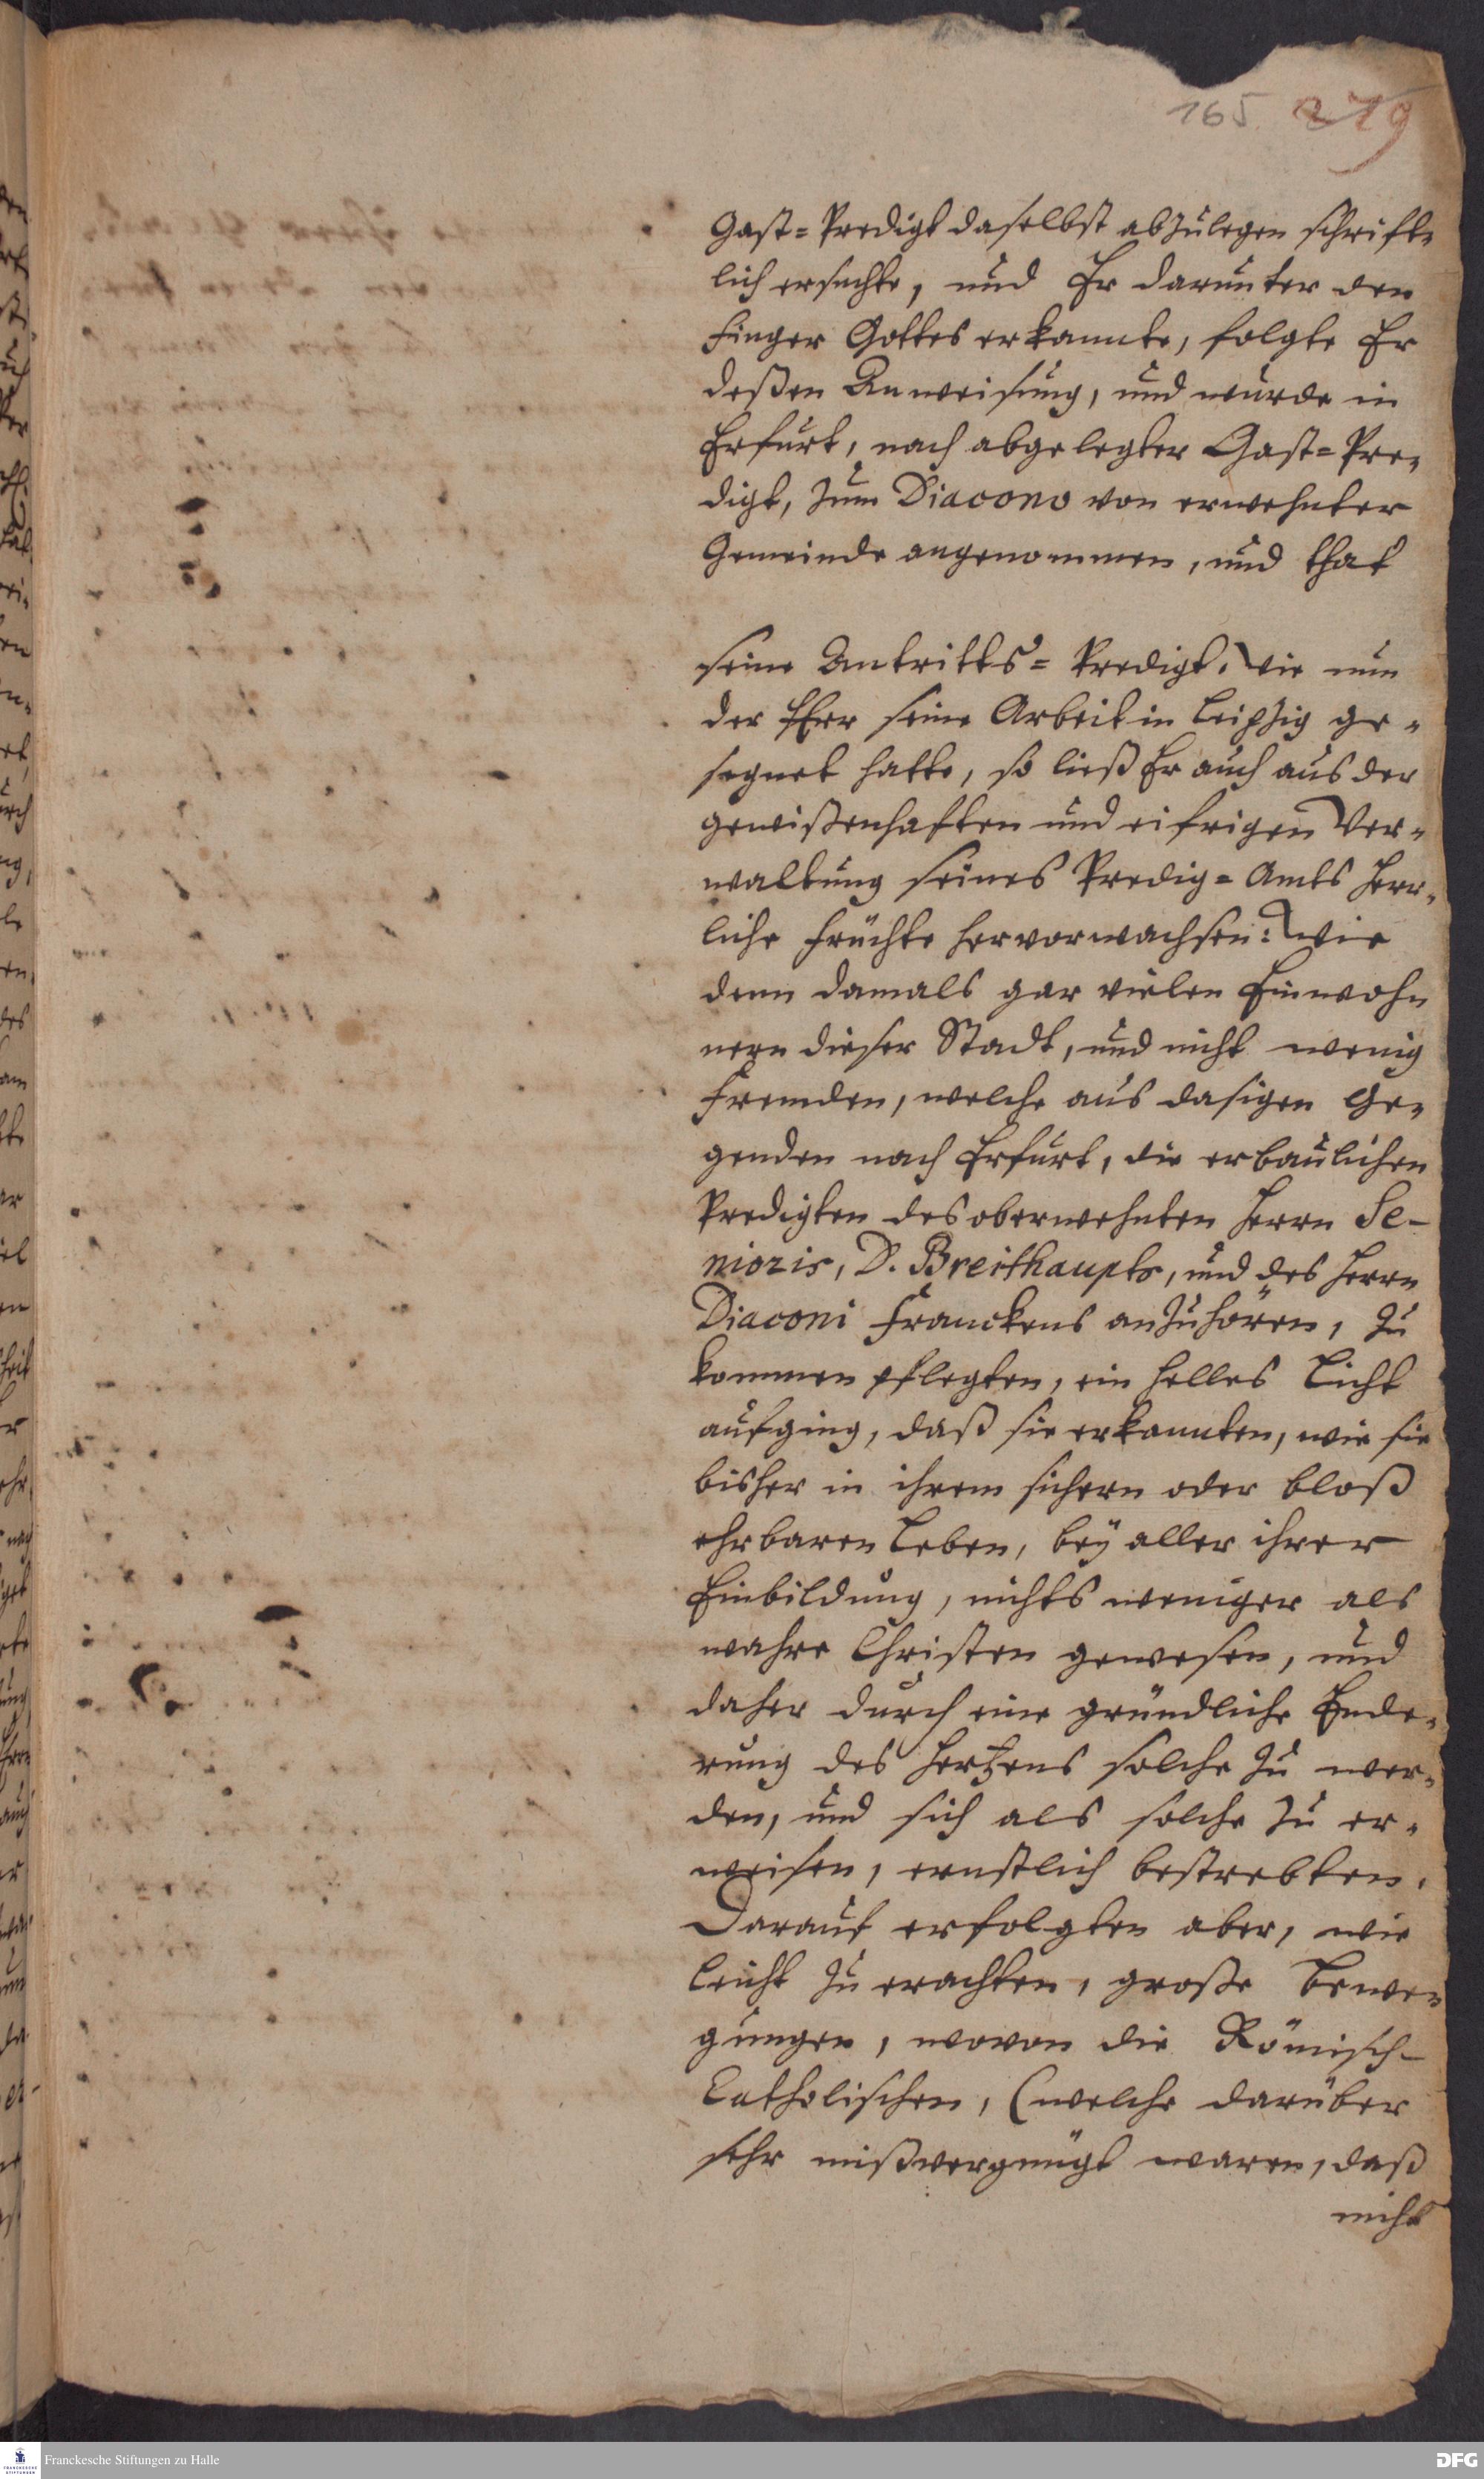 165 279
Gast=Predigt daselbst abzulegen schrift-
lich ersuchte, und Er darunter den
Finger Gottes erkannte, folgte Er
deßen Anweisung, und wurde in
Erfurt, nach abgelegter Gast=Pre-
digt, zum Diacono von erwehnter
Gemeinde angenommen, und that
seine Antritts=Predigt. Wie nun
der HErr seine Arbeit in Leipzig ge-
segnet hatte, so ließ Er auch aus der
gewißenhaften und eifrigen Ver-
waltung seines Predig=Amts herr-
liche Früchte hervorwachsen: Wie
denn damals gar vielen Einwoh-
nern dieser Stadt, und nicht wenig
Fremden, welche aus dasigen Ge-
genden nach Erfurt, die erbaulichen
Predigten des oberwehnten Herrn Se-
nioris, D. Breithaupts, und des Herrn
Diaconi Franckens anzuhören, zu
kommen pflegten, ein helles Licht
aufging, daß sie erkannten, wie sie
bisher in ihrem sichern oder bloß
ehrbaren Leben, bey aller ihrer
Einbildung, nichts weniger als
wahre Christen gewesen, und
daher durch eine gründliche Ende-
rung des Hertzens solche zu wer-
den, und sich als solche zu er-
weisen, ernstlich bestrebten.
Darauf erfolgten aber, wie
leicht zu erachten, große Bewe-
gungen, wovon die Römisch-
Catholischen, (welche darüber
sehr mißvergnügt waren, daß
nicht
Franckesche Stiftungen zu Halle
DFG